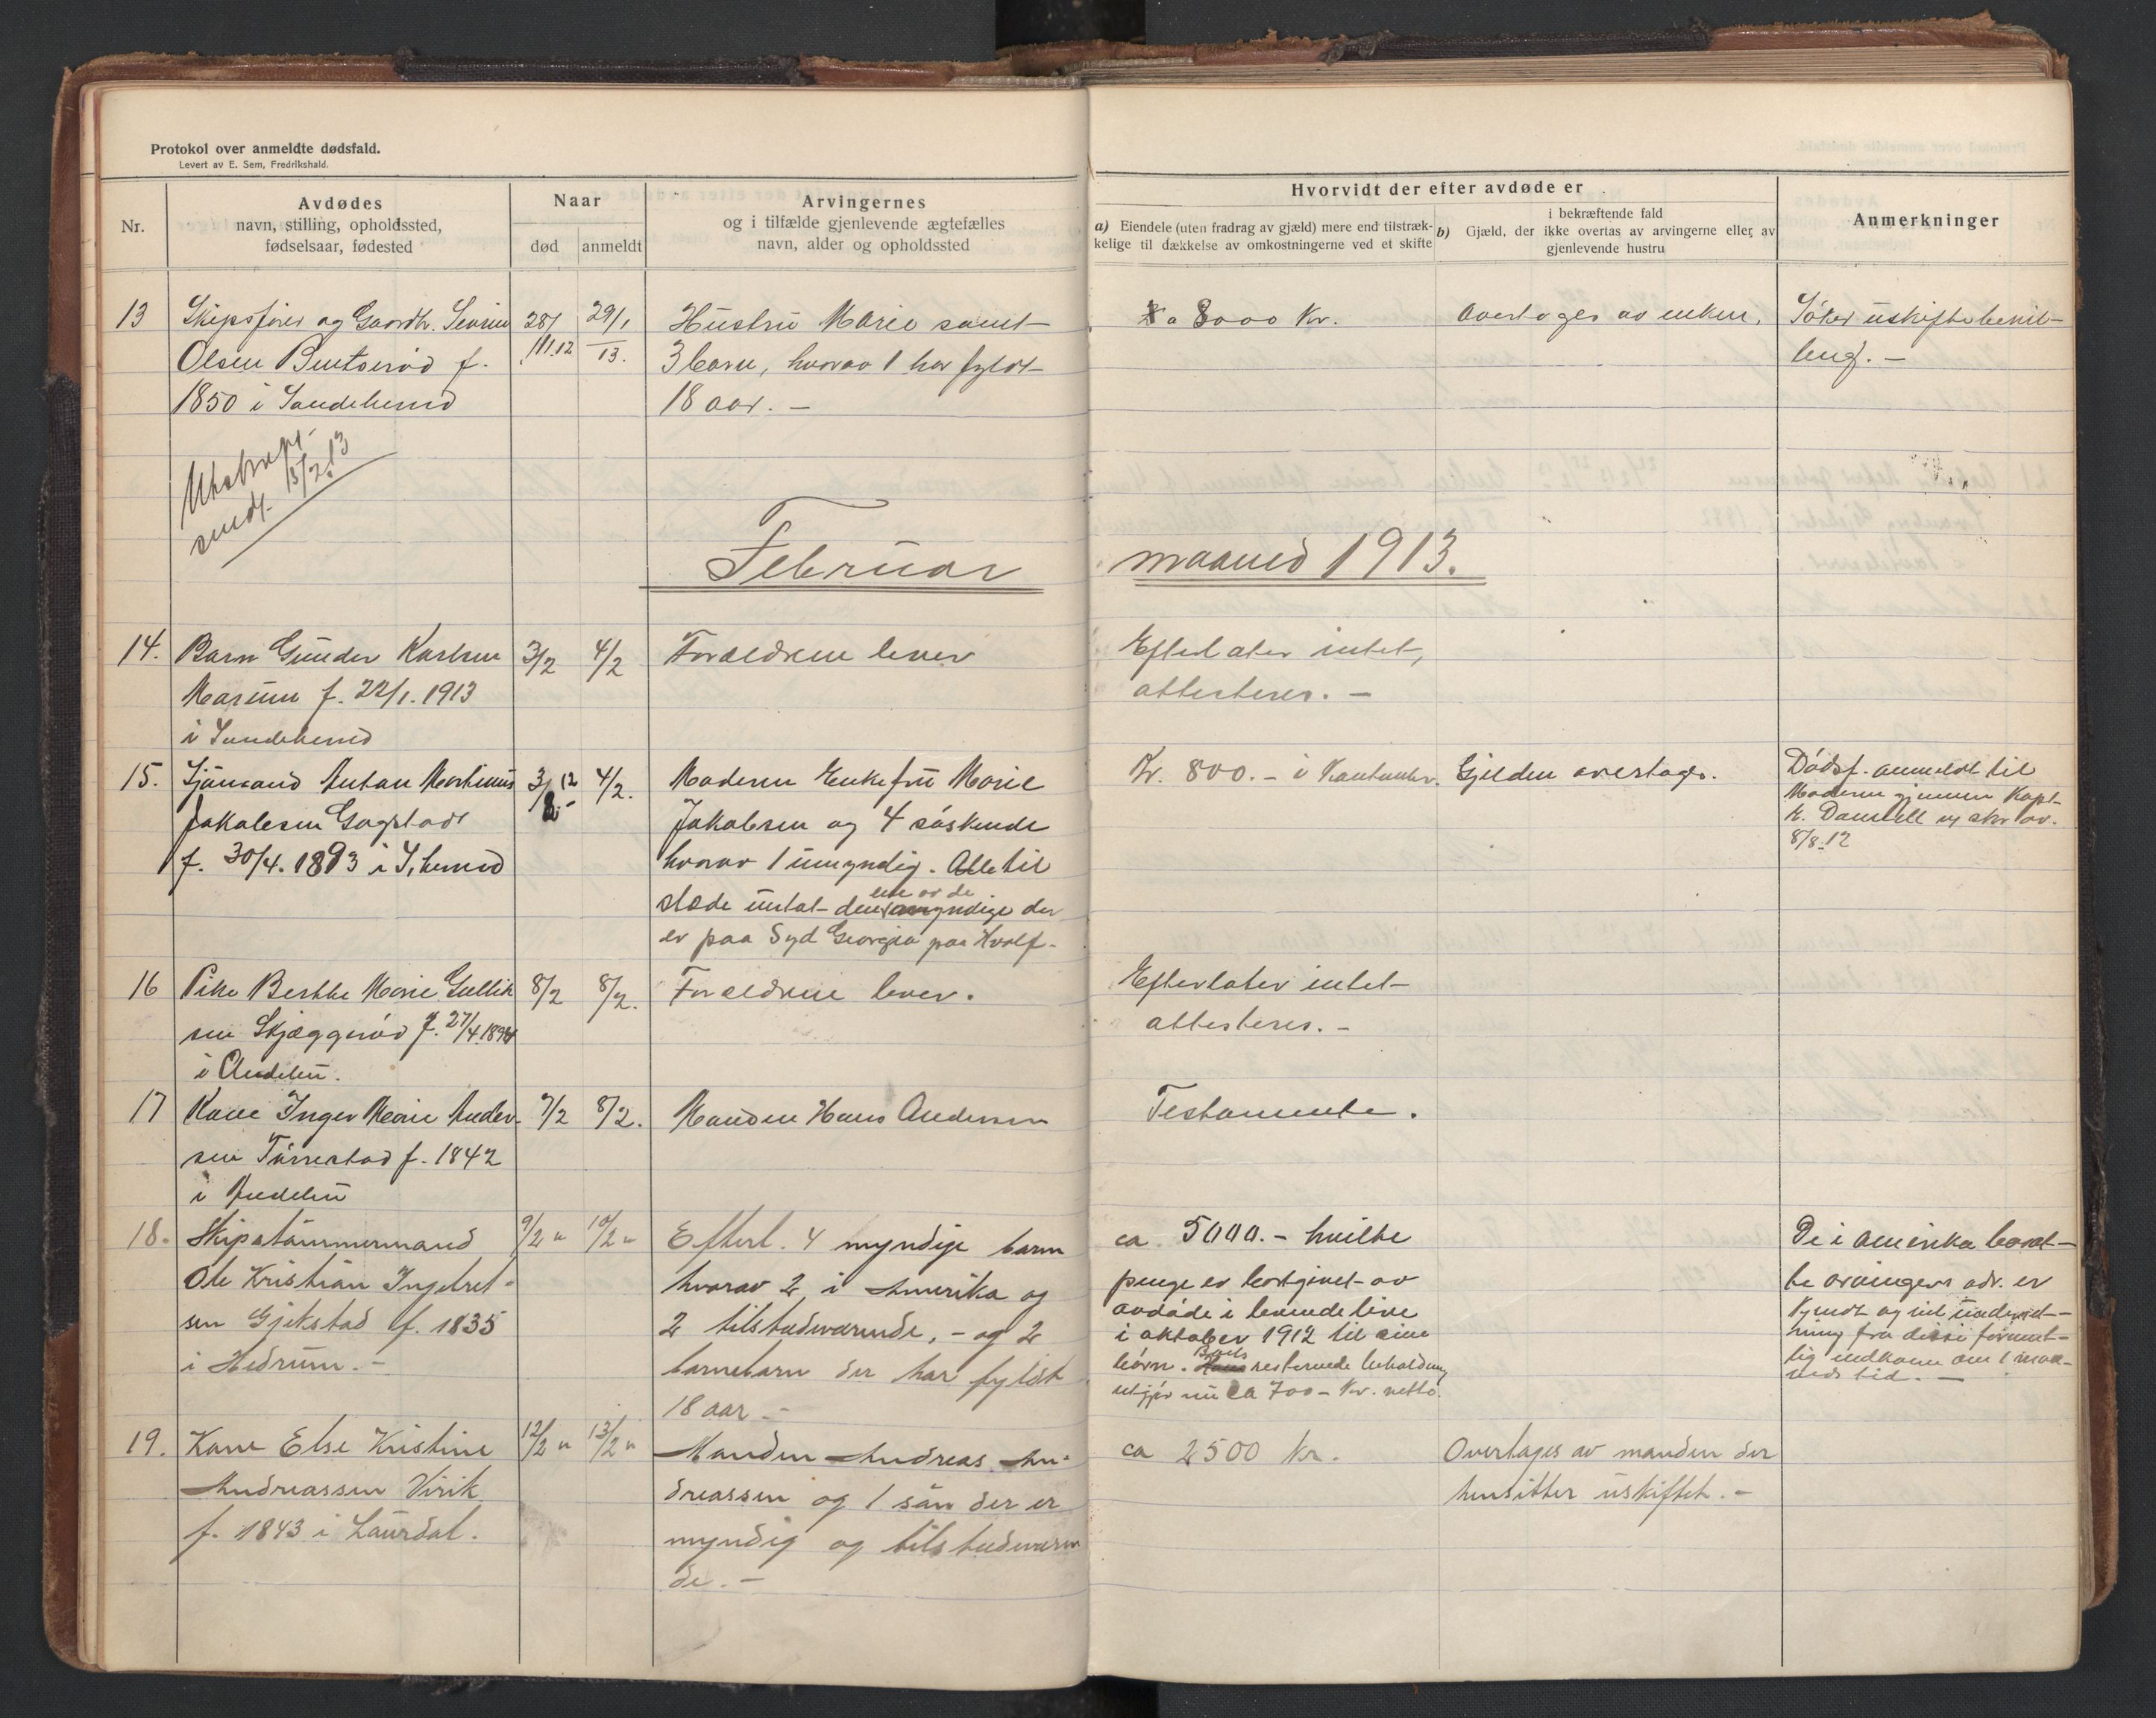 Protokol over anmeldte dødsfald.
Levert av E. Sem, Fredrikshald.
Nr.
Avdødes
navn, stilling, opholdssted,
fødselsaar, fødested
Naar
død
anmeldt
Arvingernes
og i tilfælde gjenlevende ægtefælles
navn, alder og opholdssted
Hvorvidt der efter avdøde er
a) Eiendele (uten fradrag av gjæld) mere end tilstræk-
kelige til dækkelse av omkostningerne ved et skifte
b) i bekræftende fald
Gjæld, der ikke overtas av arvingerne eller av
gjenlevende hustru
Anmerkninger
13
Skipsfører og Gaardbr. Sevrin
Olsen Buntserød f.
1850 i Sandeherred
28/
11.12
29/1
13.
Hustru Marie samt
3 barn, hvorav 1 har fyldt
18 aar. –
8000 Kr.
Overtages av enken.
Søker uskiftebevil-
ling. –
sendt 13/2.13
Februar
maaned 1913.
14.
Barn Gunder Karlsen
Marum f. 22/1. 1913
i Sandeherred
3/2
4/2
Forældrene lever
Efterlater intet,
attesteres. –
15.
Sjømand Anton Martinius
Jakobsen Gogstad
f. 30/4. 1893 i S.herred
3/8 12
4/2.
Moderen Enkefru Marie
Jakobsen og 4 søskende
hvorav 1 umyndig. Alle til
stede untat den ene av de myndige der
er paa Syd Georgia paa Hvalf.
Kr. 800.– i Kontanter.
Gjelden overtages.
Dødsf. anmeldt til
Moderen gjennem Kapt.
K. skr. av.
8/8.12
16
Pike Berthe Marie Gullik
sen Skjæggerød f. 27/4.1894
i Andebu.
8/2
8/2.
Forældrene lever.
Efterlater intet
attesteres. –
17
Kone Inger Marie Ander-
sen Tørrestad f. 1842
i Andebu
7/2
8/2.
Manden Hans Andersen
Testamente.
18.
Skipstømmermand
Ole Kristian Ingebret-
sen Gjekstad f. 1835
i Hedrum. –
9/2 "
10/2 "
Efterl. 4 myndige barn
hvorav 2 i Amerika og
2 tilstedeværende, – og 2
barnebarn der har fyldt
18 aar. –
ca 5000.– hvilke
penge er bortgivet av
avdøde i levende live
i oktober 1912 til sine
børn. Boets resterende beholdning
utgjør nu ca 700 – Kr. netto.
De i Amerika bosat-
te arvingers adr. er
kjendt og vil underret-
ning fra disse forment-
lig indkomme om 1 maa-
neds tid. –
19.
Kone Else Kristine
Andreassen Virik
f. 1843 i Laurdal.
12/2 "
13/2 "
Manden Andreas An-
dreassen og 1 søn der er
myndig og tilstedeværen
de. –
ca 2500 Kr.
Overtages av manden der
hensitter uskiftet. –